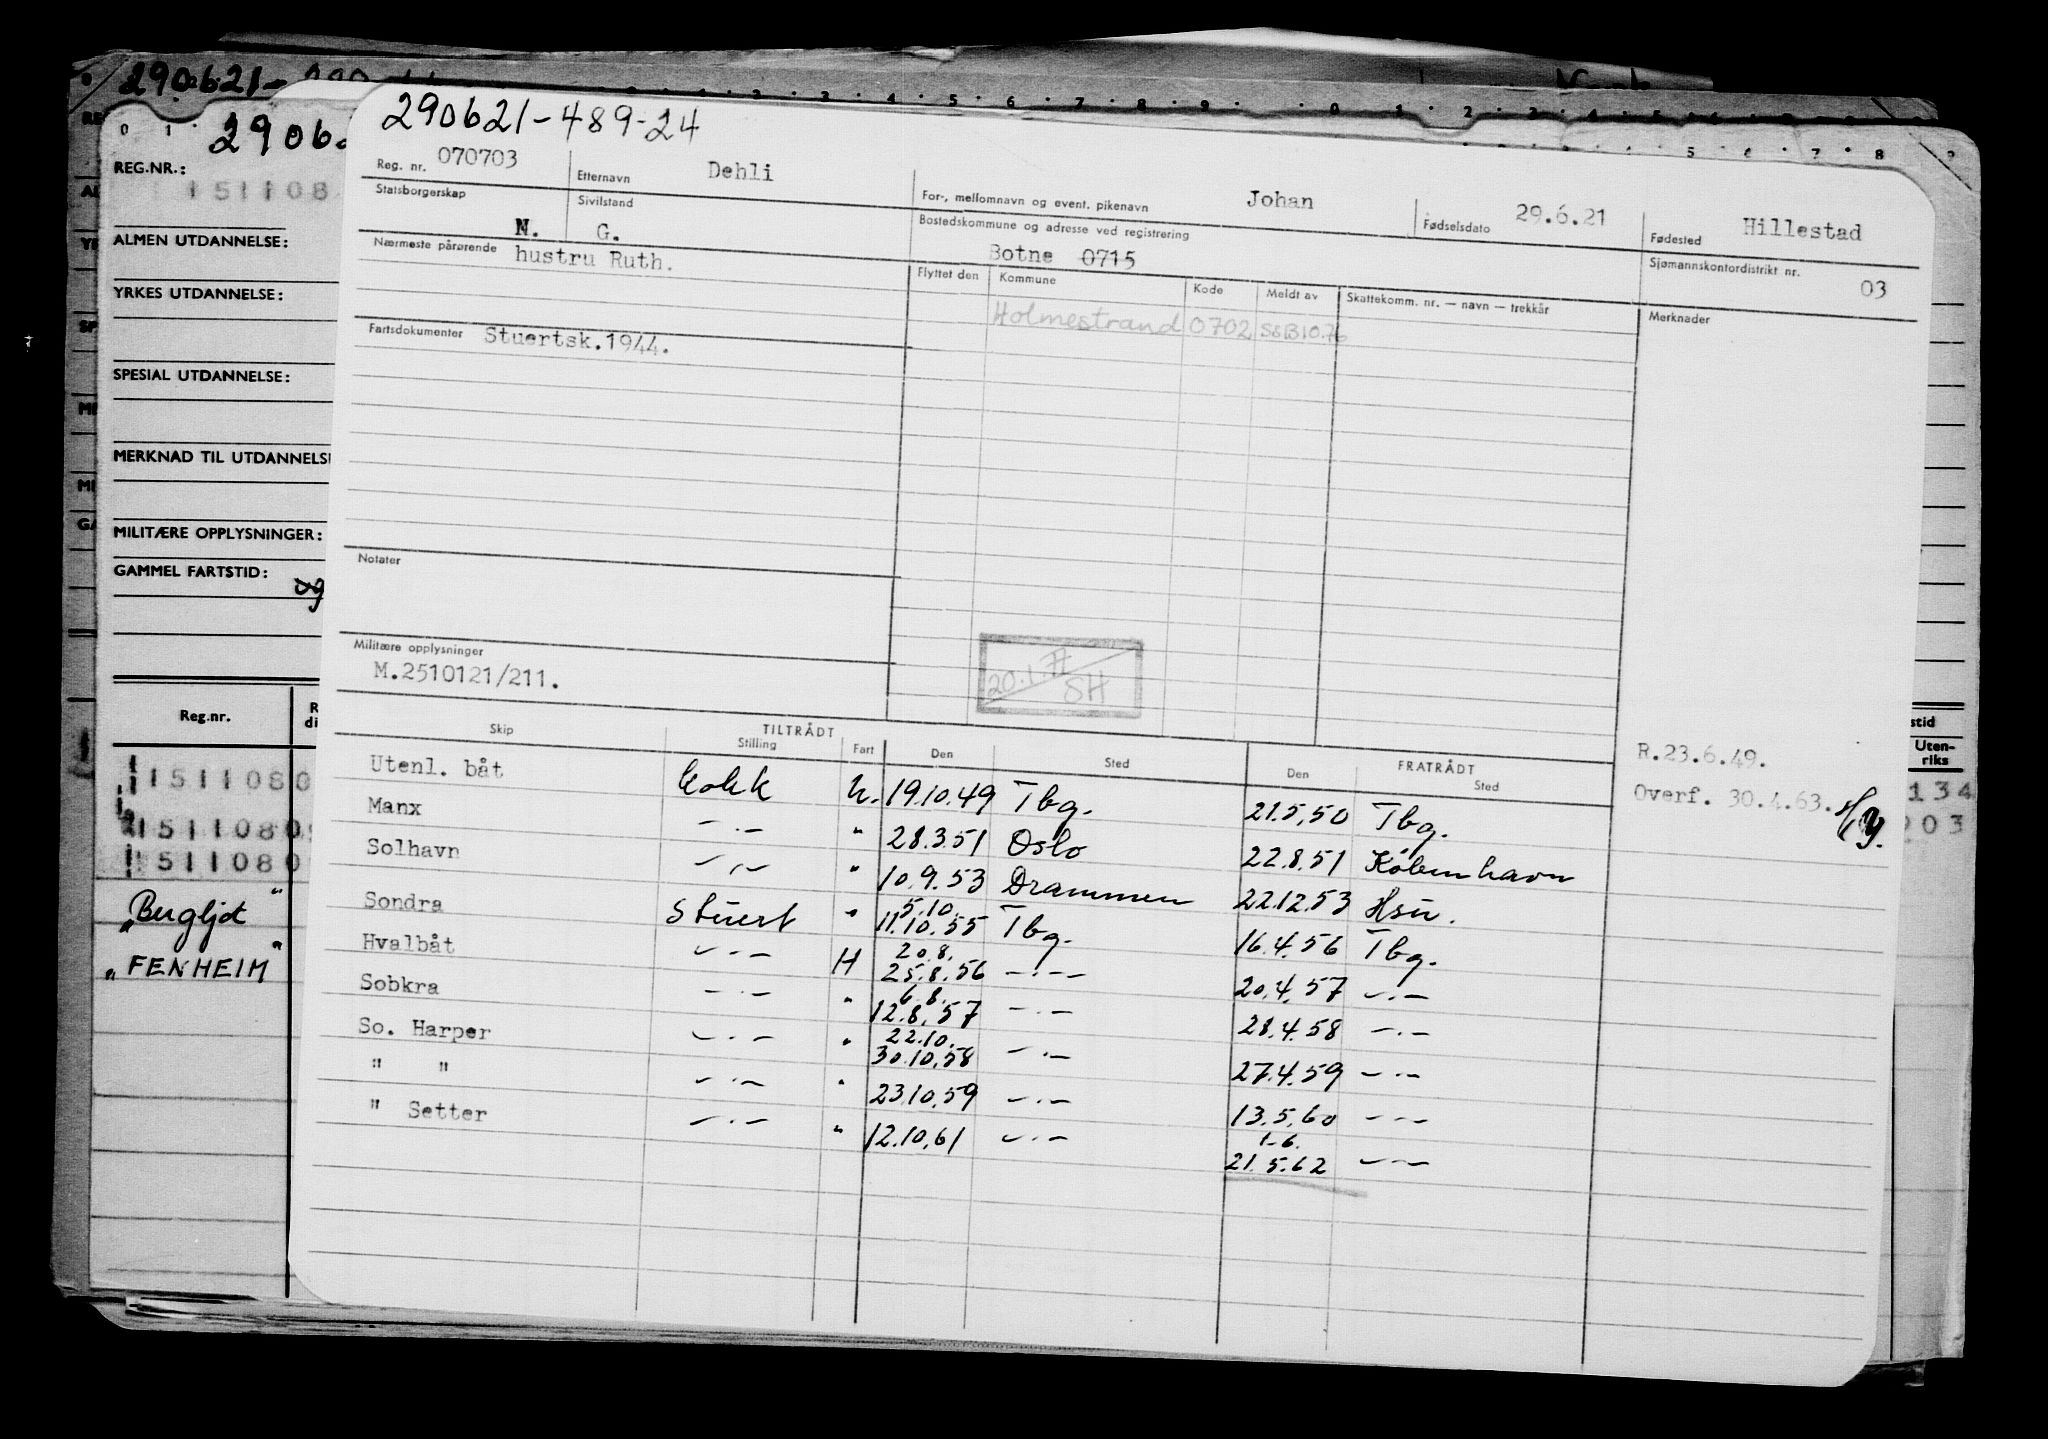 290621-
290621-489-24
REG.NR.:
151108
ALMEN UTDANNELSE:
YRKES UTDANNELSE:
SPESIAL UTDANNELSE:
MERKNAD TIL UTDANNELSE
MILITÆRE OPPLYSNINGER:
GAMMEL FARTSTID: og
Reg.nr.
1511080
1511080
1511080
"Bergljot"
"FENHEIM"
Reg. nr. 070703 Etternavn Dehli For-, mellomnavn og event. pikenavn Johan Fødselsdato 29.6.21 Fødested Hillestad
Statsborgerskap N. Sivilstand G. Bostedskommune og adresse ved registrering Botne 0715 Sjømannskontordistrikt nr. 03
Nærmeste pårørende hustru Ruth. Flyttet den Kommune Kode Meldt av Skattekomm. nr. — navn — trekkår Merknader
Holmestrand 0702 SSB10.76
Fartsdokumenter Stuertsk.1944.
Notater
20.1.77 SH
Militære opplysninger
M.2510121/211.
R.23.6.49.
Overf. 30.4.63.
Skip TILTRÅDT Stilling Fart Den Sted FRATRÅDT Den Sted
Utenl. båt kokk U. 19.10.49 Tbg. 21.5.50 Tbg.
Manx —.— " 28.3.51 Oslo 22.8.51 København
Solhavn —.— " 10.9.53 Drammen 22.12.53 Hsu.
5.10.
Sondra Stuert " 11.10.55 Tbg. 16.4.56 Tbg.
20.8.
Hvalbåt —.— H 25.8.56 —.— 20.4.57 —.—
6.8.
Sobkra —.— " 12.8.57 —.— 28.4.58 —.—
22.10.
So. Harper —.— " 30.10.58 —.— 27.4.59 —.—
" " —.— " 23.10.59 —.— 13.5.60 —.—
1-6.
" Setter —.— " 12.10.61 —.— 21.5.62 —.—
stid
Uten-
riks
134
203